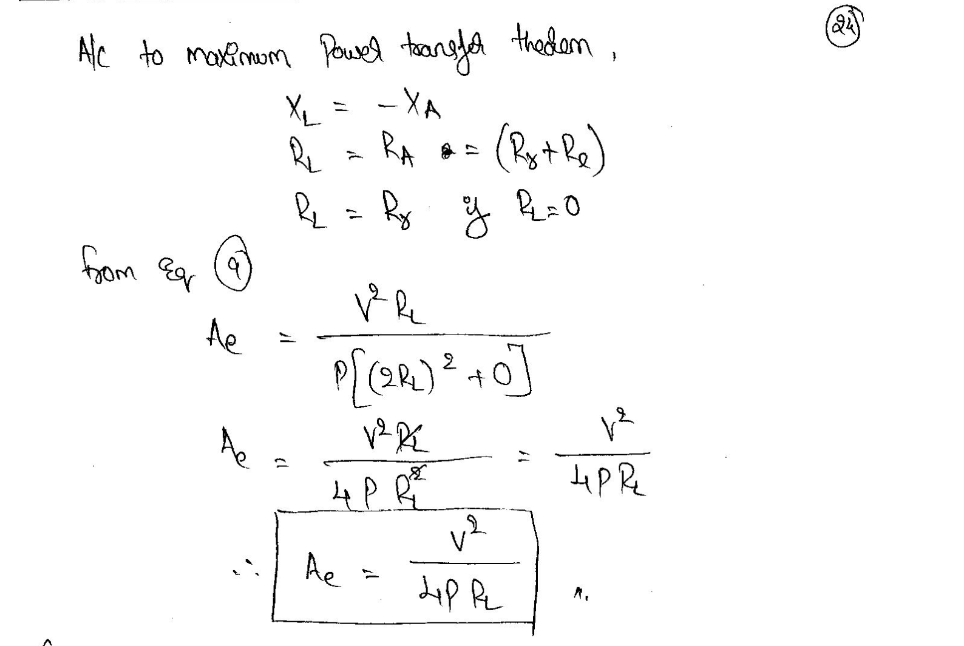 24
A/c to maximum Power transfer theorem,
X_L = - X_A
R_L = R_A = (R_r + R_l)
R_L = R_r if R_L = 0
from Eq (9)
A_e = V² R_L / P[(2R_L)² + 0]
A_e = V² R_L / 4 P R_L² = V² / 4 P R_L
∴ A_e = V² / 4 P R_L